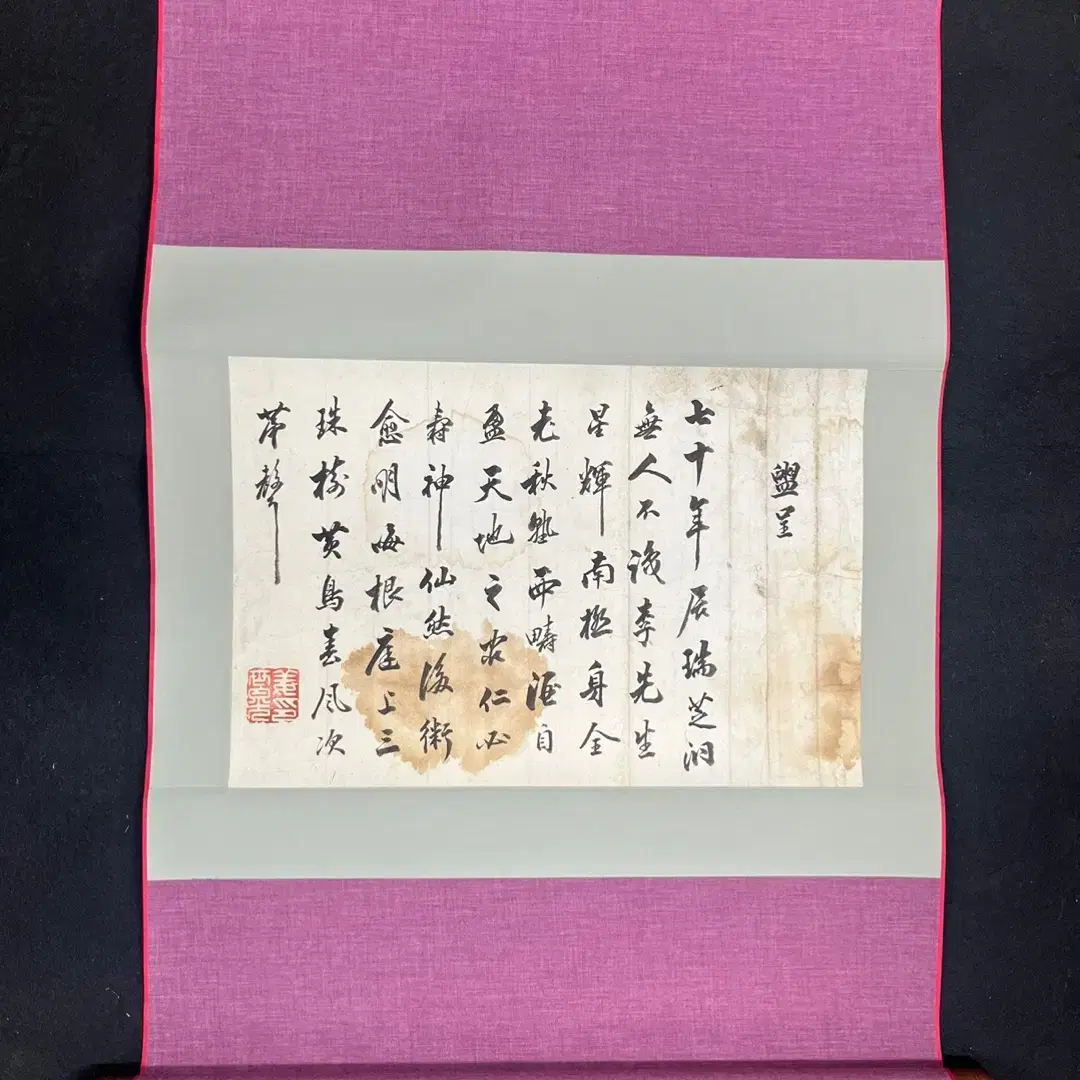 盥呈
七十年辰瑞芝泂
無人不李先生
星輝南極身全
老秋熟西疇酒自
盈天地之仁必
壽神仙然後術
愈明海根座上三
珠樹黃鳥春風次
苐聲